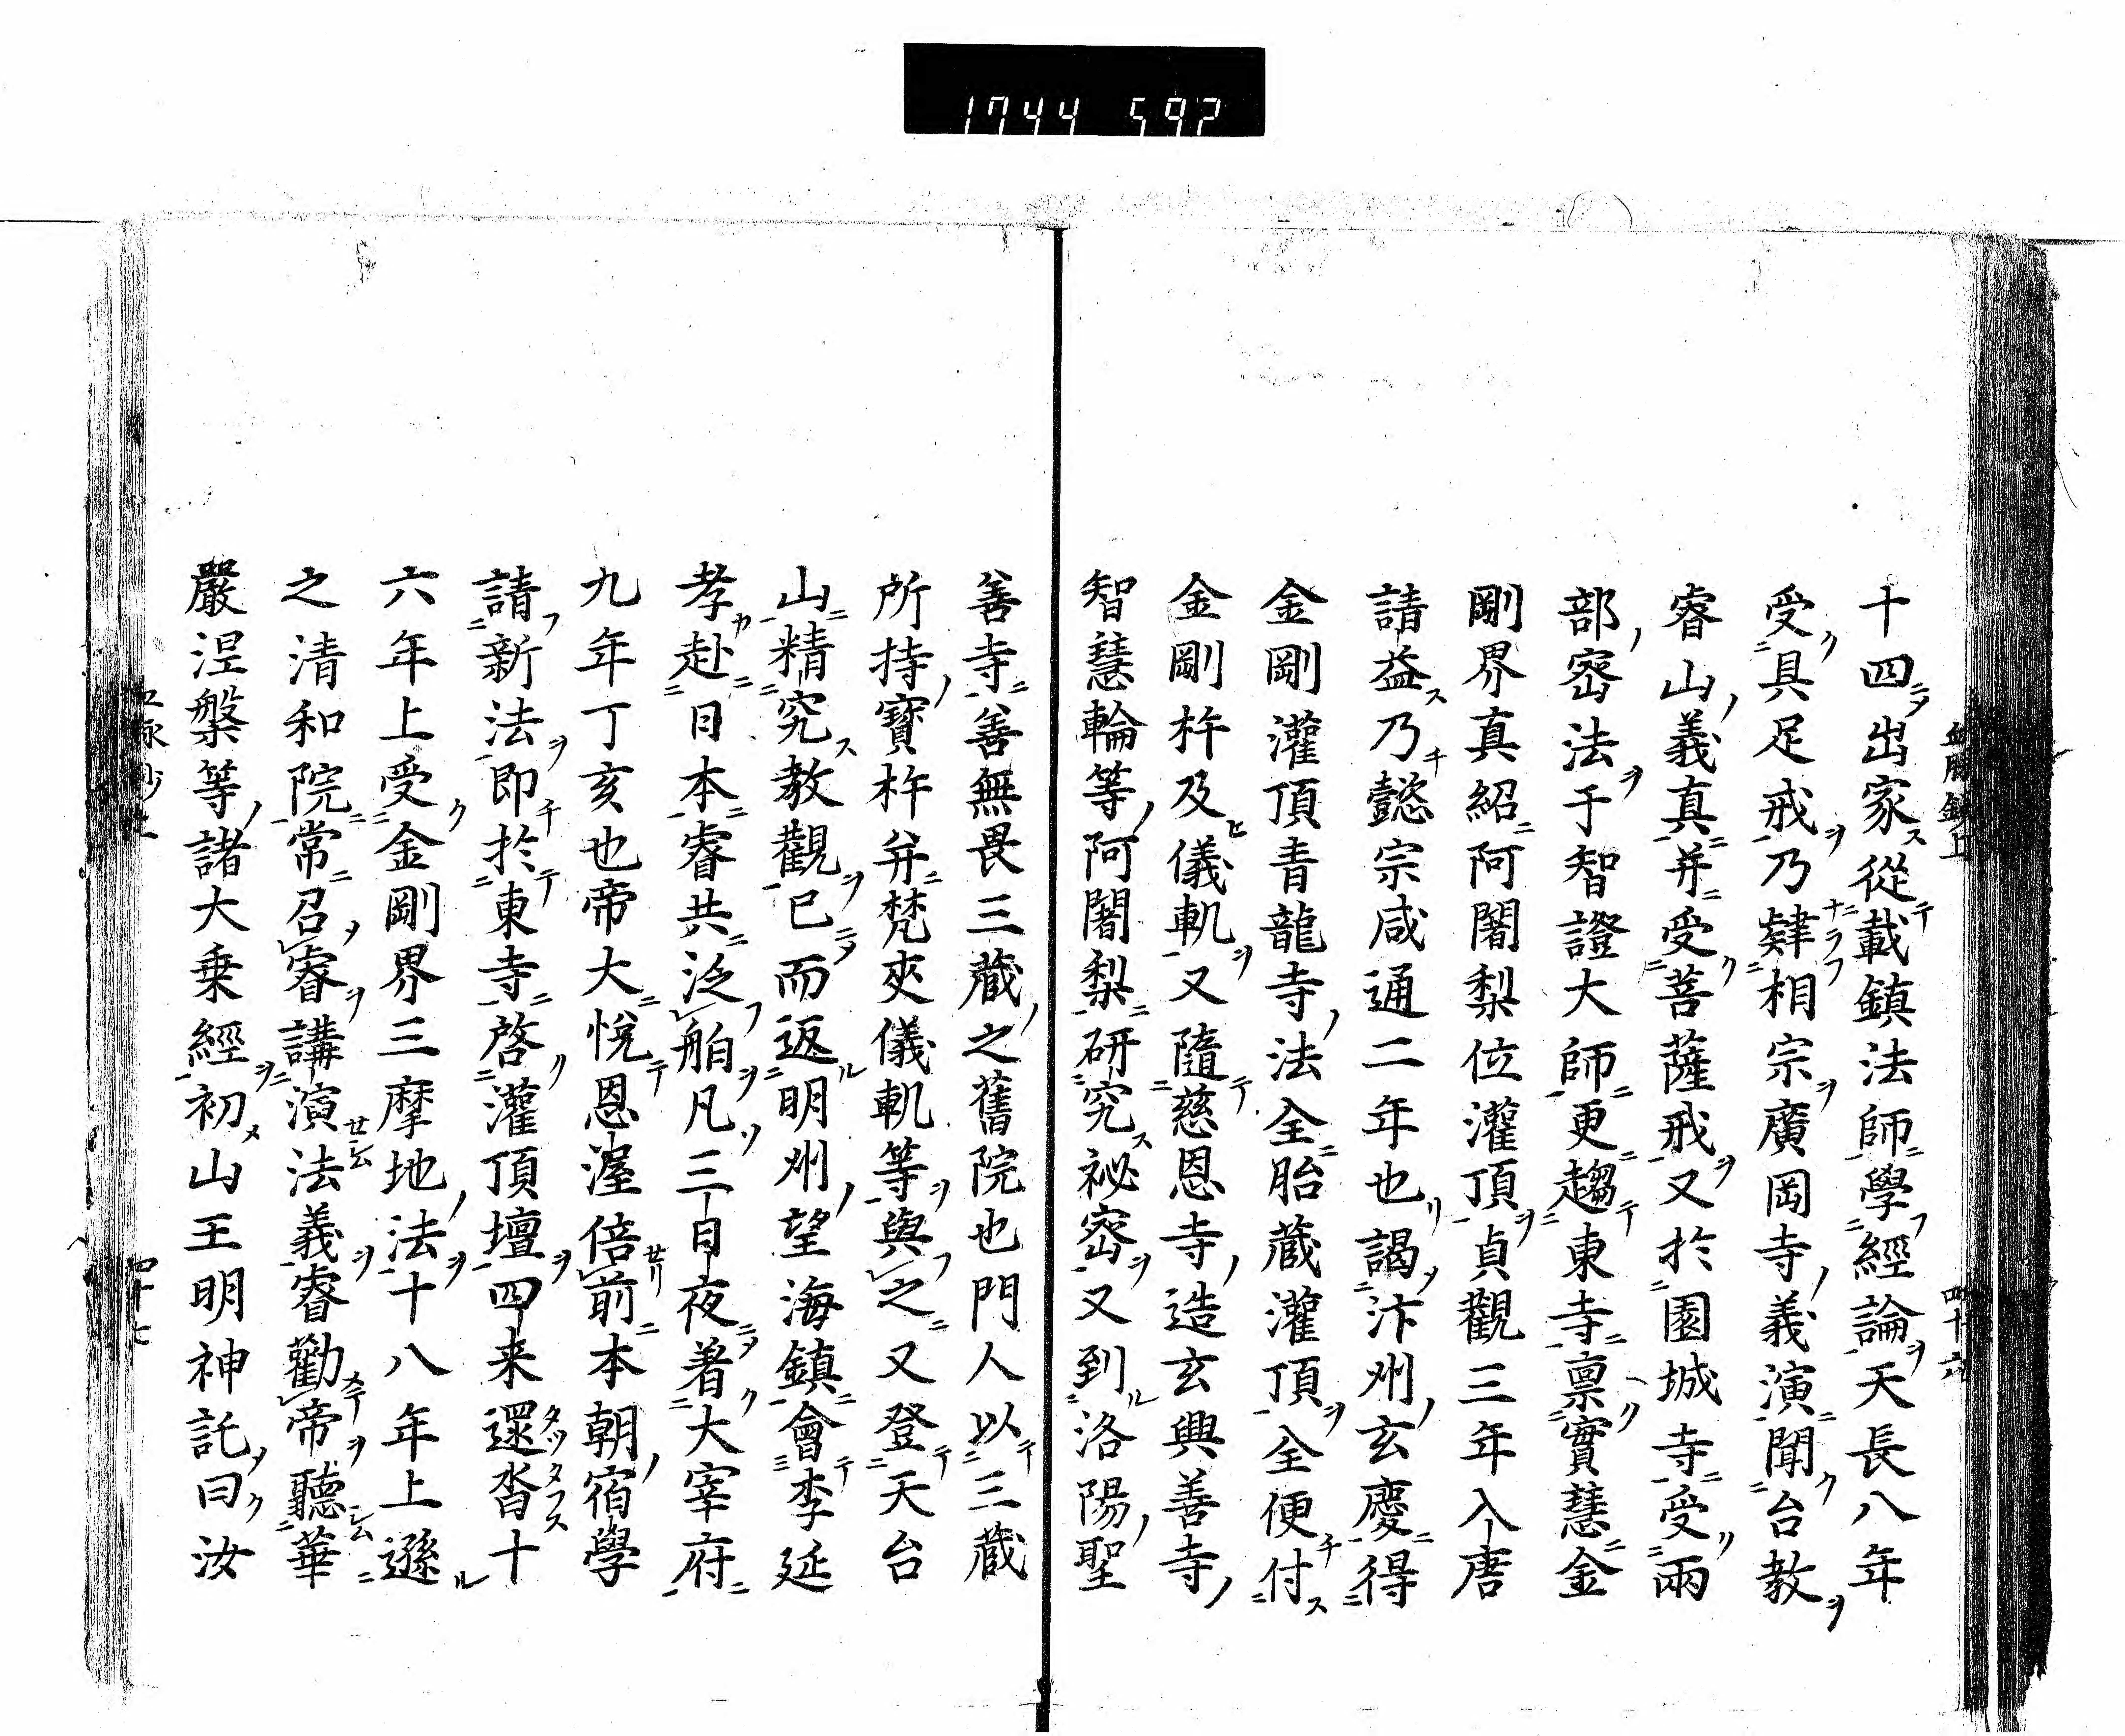 1744 597
十四出家從載鎮法師學經論天長八年
受具足戒乃肄相宗廣岡寺義演聞台教
睿山義真并受菩薩戒又於園城寺受兩
部密法于智證大師更趨東寺禀實慧金
剛界真紹阿闍梨位灌頂貞觀三年入唐
請益乃懿宗咸通二年也謁汴州玄慶得
金剛灌頂青龍寺法全胎蔵灌頂全便付
金剛杵及儀軌又隨慈恩寺造玄興善寺
智慧輪等阿闍梨研究祕密又到洛陽聖
善寺善無畏三蔵之舊院也門人以三蔵
所持寶杵并梵夾儀軌等與之又登天台
山精究教觀已而返明州望海鎮會李延
孝赴日本睿共泛舶凡三日夜着大宰府
九年丁亥也帝大悅恩渥倍前本朝宿學
請新法即於東寺啓灌頂壇四来還沓十
六年上受金剛界三摩地法十八年上遜
之清和院常召睿講演法義睿勸帝聽華
嚴涅槃等諸大乗經初山王明神託曰汝
四十六
四十七